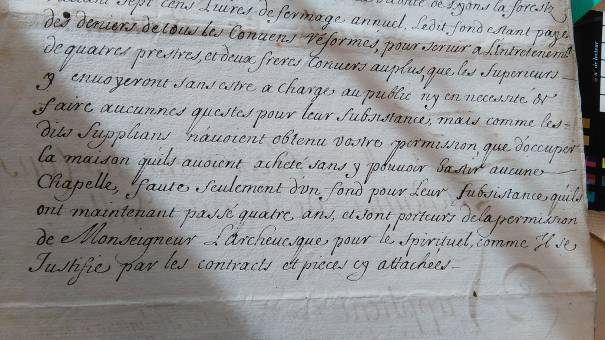 sept cens Livres de fermage annuel, Ledit, fond estant payé
des deniers de tous les Convens réformés, pour servir a L'entretenemt
de quatres prestres, et deux freres Convers au plus que les Superieurs
y envoyeront sans estre a charge au public ny en necessité de
faire aucunnes questes pour leur Subsistance, mais comme les
dits Supplians n'avoient obtenu vostre permission que d'occuper
la maison quils avoient acheté sans y pouvoir bastir aucune
Chapelle, faute seulement d'un fond pour Leur Subsistance quils
ont maintenant passé quatre ans, et sont porteurs de la permission
de Monseigneur L'archevesque pour le spirituel, comme Il se
Justifie par les contracts et pieces cy attachées